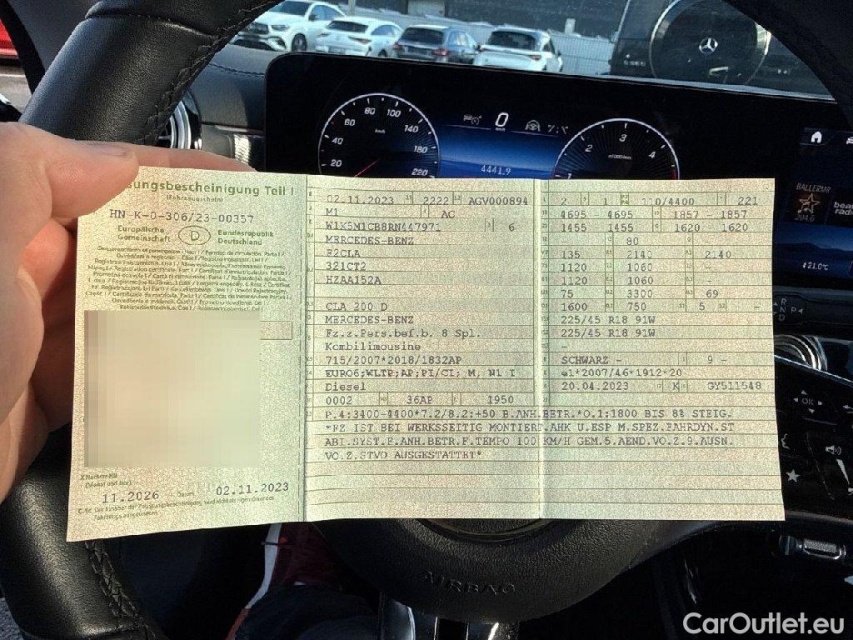 80 100
60 140
40 160
20 260
0
4441.9
1 2 3 4
BALLERMA
421.0m
OK
ungsbescheinigung Teil I
HN-K-0-306/23-00357
Europäische Gemeinschaft D Bundesrepublik Deutschland
11.2026 02.11.2023
02.11.2023 2222 AGV000894
M1 AC
W1K5M1CB8RN447971 6
MERCEDES-BENZ
F2CLA
321CT2
HZAA152A
CLA 200 D
MERCEDES-BENZ
Fz.z.Pers.bef.b. 8 Spl.
Kombilimousine
715/2007*2018/1832AP
EURO6;WLTP;AP;PI/CI; M, N1 I
Diesel
0002 36AP 1950
2 1 110/4400 221
4695 - 4695 1857 - 1857
1455 1455 1620 1620
80
135 2140 2140
1120 1060
1120 1060
75 3300 69
1600 750 5 -
225/45 R18 91W
225/45 R18 91W
-
SCHWARZ - 9 -
e1*2007/46*1912*20
20.04.2023 K GY511548
P.4:3400-4400*7.2/8.2:+50 B.ANH.BETR.*O.1:1800 BIS 8% STEIG.
*FZ IST BEI WERKSSEITIG MONTIERT.AHK U.ESP M.SPEZ.FAHRDYN.ST
ABI.SYST.F.ANH.BETR.F.TEMPO 100 KM/H GEM.9.AEND.VO.Z.9.AUSN.
VO.Z.STVO AUSGESTATTET*
AIRBAG
CarOutlet.eu